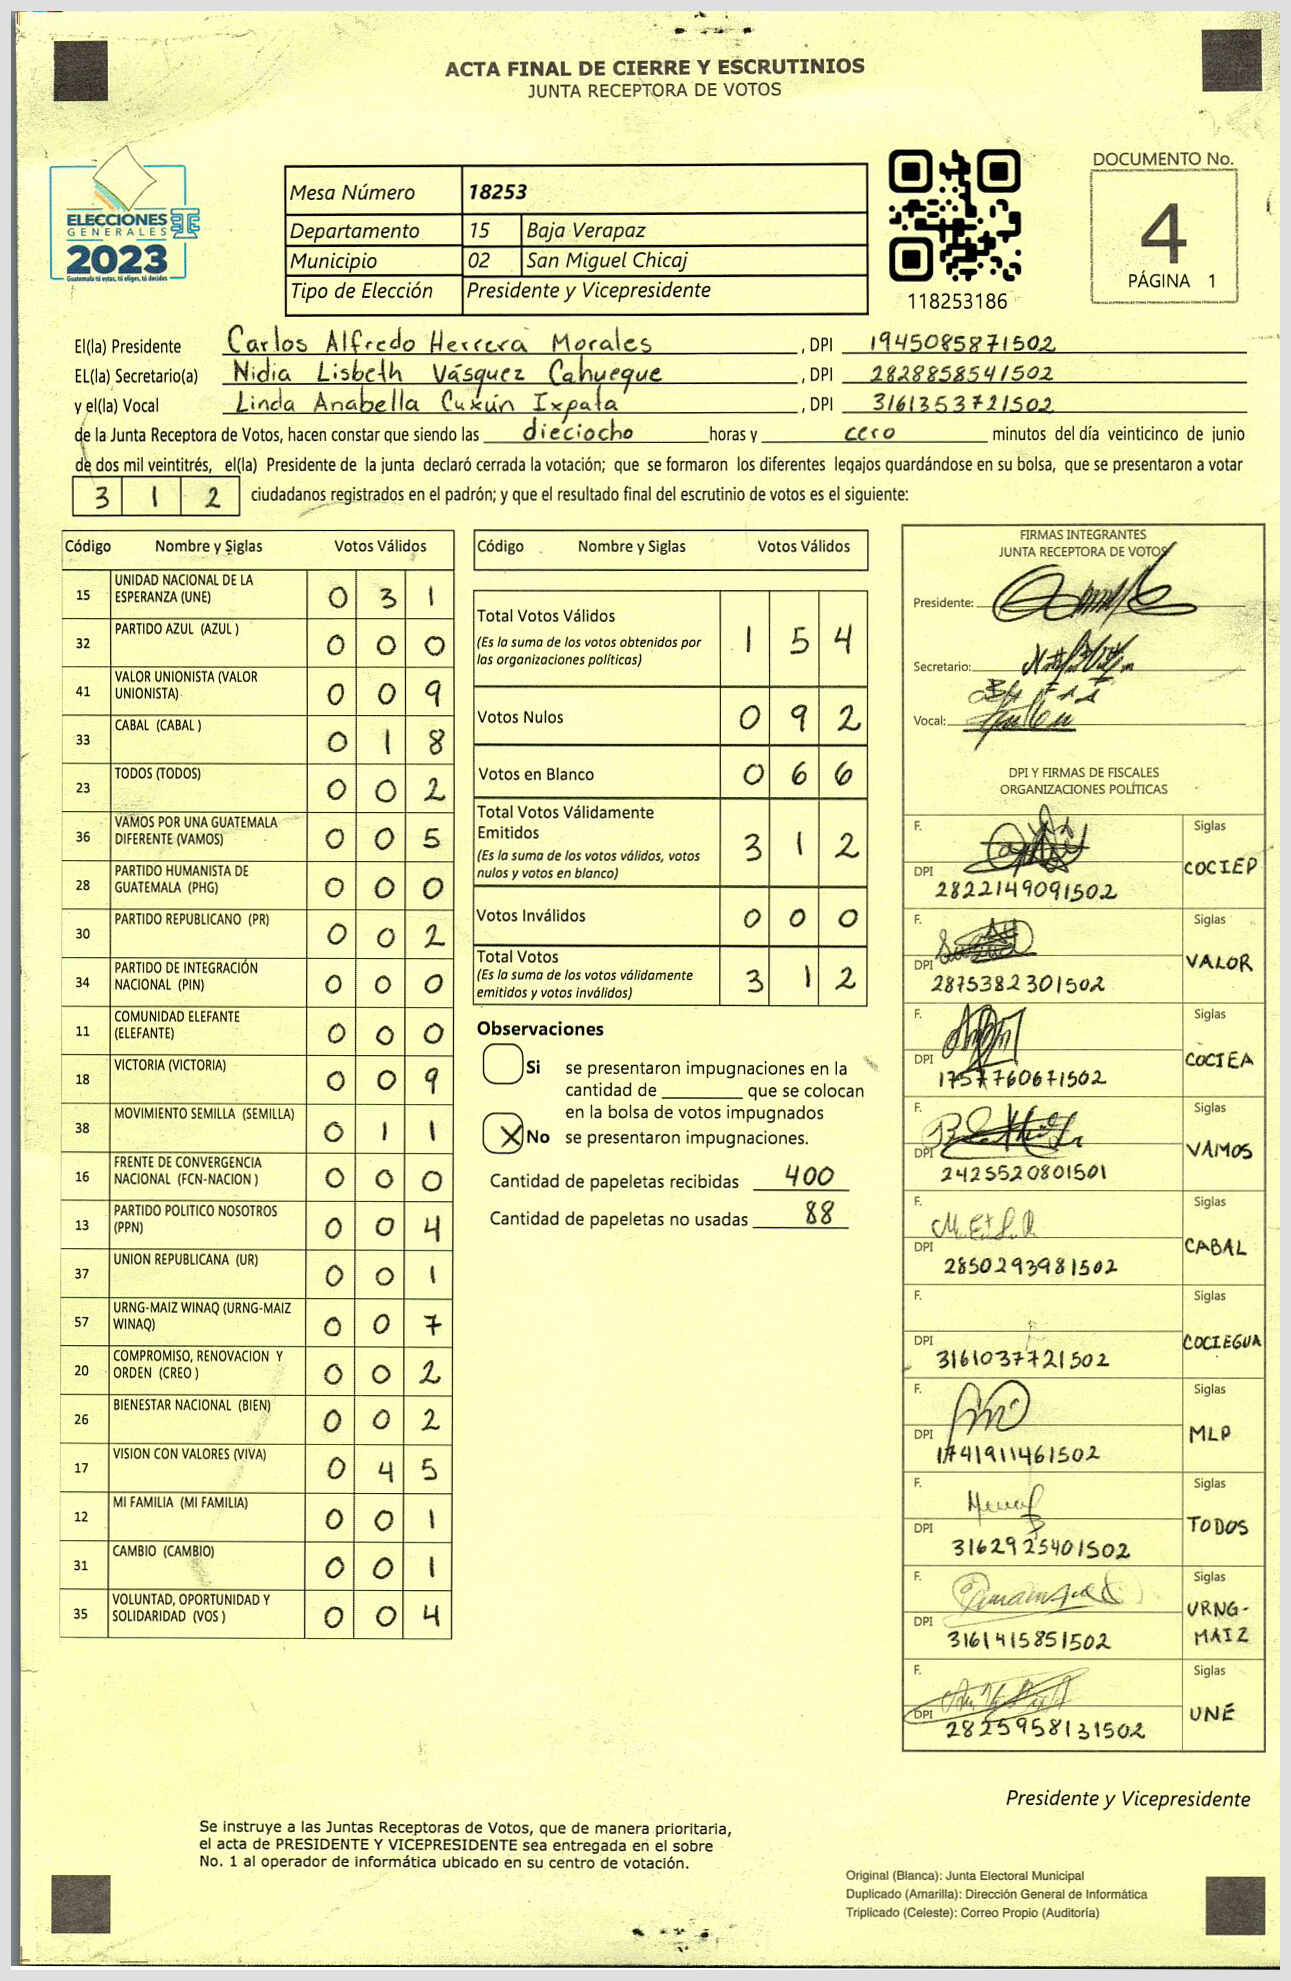 ACTA FINAL DE CIERRE Y ESCRUTINIOS
JUNTA RECEPTORA DE VOTOS
ELECCIONES
GENERALES
2023
Guatemala tú votas, tú eliges, tú decides
Mesa Número 18253
Departamento 15 Baja Verapaz
Municipio 02 San Miguel Chicaj
Tipo de Elección Presidente y Vicepresidente
118253186
DOCUMENTO No.
4
PÁGINA 1
El(la) Presidente Carlos Alfredo Herrera Morales , DPI 1945085871502
EL(la) Secretario(a) Nidia Lisbeth Vásquez Cahueque , DPI 2828858541502
y el(la) Vocal Linda Anabella Cuxún Ixpata , DPI 3161353721502
de la Junta Receptora de Votos, hacen constar que siendo las dieciocho horas y cero minutos del día veinticinco de junio
de dos mil veintitrés, el(la) Presidente de la junta declaró cerrada la votación; que se formaron los diferentes legajos guardándose en su bolsa, que se presentaron a votar
3 1 2 ciudadanos registrados en el padrón; y que el resultado final del escrutinio de votos es el siguiente:
Código Nombre y Siglas Votos Válidos
15 UNIDAD NACIONAL DE LA ESPERANZA (UNE) 0 3 1
32 PARTIDO AZUL (AZUL ) 0 0 0
41 VALOR UNIONISTA (VALOR UNIONISTA) 0 0 9
33 CABAL (CABAL ) 0 1 8
23 TODOS (TODOS) 0 0 2
36 VAMOS POR UNA GUATEMALA DIFERENTE (VAMOS) 0 0 5
28 PARTIDO HUMANISTA DE GUATEMALA (PHG) 0 0 0
30 PARTIDO REPUBLICANO (PR) 0 0 2
34 PARTIDO DE INTEGRACIÓN NACIONAL (PIN) 0 0 0
11 COMUNIDAD ELEFANTE (ELEFANTE) 0 0 0
18 VICTORIA (VICTORIA) 0 0 9
38 MOVIMIENTO SEMILLA (SEMILLA) 0 1 1
16 FRENTE DE CONVERGENCIA NACIONAL (FCN-NACION ) 0 0 0
13 PARTIDO POLITICO NOSOTROS (PPN) 0 0 4
37 UNION REPUBLICANA (UR) 0 0 1
57 URNG-MAIZ WINAQ (URNG-MAIZ WINAQ) 0 0 7
20 COMPROMISO, RENOVACION Y ORDEN (CREO ) 0 0 2
26 BIENESTAR NACIONAL (BIEN) 0 0 2
17 VISION CON VALORES (VIVA) 0 4 5
12 MI FAMILIA (MI FAMILIA) 0 0 1
31 CAMBIO (CAMBIO) 0 0 1
35 VOLUNTAD, OPORTUNIDAD Y SOLIDARIDAD (VOS ) 0 0 4
Código Nombre y Siglas Votos Válidos
Total Votos Válidos 1 5 4
(Es la suma de los votos obtenidos por
las organizaciones políticas)
Votos Nulos 0 9 2
Votos en Blanco 0 6 6
Total Votos Válidamente
Emitidos 3 1 2
(Es la suma de los votos válidos, votos
nulos y votos en blanco)
Votos Inválidos 0 0 0
Total Votos 3 1 2
(Es la suma de los votos válidamente
emitidos y votos inválidos)
Observaciones
Si se presentaron impugnaciones en la
cantidad de ________ que se colocan
en la bolsa de votos impugnados
X No se presentaron impugnaciones.
Cantidad de papeletas recibidas 400
Cantidad de papeletas no usadas 88
FIRMAS INTEGRANTES
JUNTA RECEPTORA DE VOTOS
Presidente:
Secretario:
Vocal:
DPI Y FIRMAS DE FISCALES
ORGANIZACIONES POLÍTICAS
F. Siglas
DPI 2822149091502 COCIEP
F. Siglas
DPI 2875382301502 VALOR
F. Siglas
DPI 1757760671502 COCIEA
F. Siglas
DPI 2425520801501 VAMOS
F. Siglas
DPI 2850293981502 CABAL
F. Siglas
DPI 3161037721502 COCIEGUA
F. Siglas
DPI 1741911461502 MLP
F. Siglas
DPI 3162925401502 TODOS
F. Siglas
DPI 3161415851502 URNG-
MAIZ
F. Siglas
DPI 2825958131502 UNE
Presidente y Vicepresidente
Se instruye a las Juntas Receptoras de Votos, que de manera prioritaria,
el acta de PRESIDENTE Y VICEPRESIDENTE sea entregada en el sobre
No. 1 al operador de informática ubicado en su centro de votación.
Original (Blanca): Junta Electoral Municipal
Duplicado (Amarilla): Dirección General de Informática
Triplicado (Celeste): Correo Propio (Auditoría)